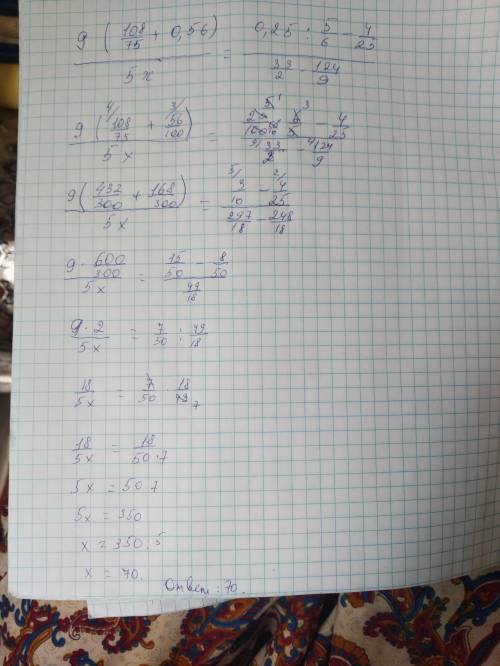 9 (108/75 + 0,56) / 5x = (0,25 : 5/6 - 4/25) / (33/2 - 124/9)
9 (4/ 108/75 + 3/ 56/100) / 5x = (25/100 · 6/5 - 4/25) / (9/ 33/2 - 2/ 124/9)
9 (432/300 + 168/300) / 5x = (5/ 3/10 - 2/ 4/25) / (297/18 - 248/18)
9 · 600/300 / 5x = (15/50 - 8/50) / 49/18
9 · 2 / 5x = 7/50 : 49/18
18/5x = 7/50 18/49 7
18/5x = 18/50·7
5x = 50 7
5x = 350
x = 350 : 5
x = 70.
Ответ : 70.